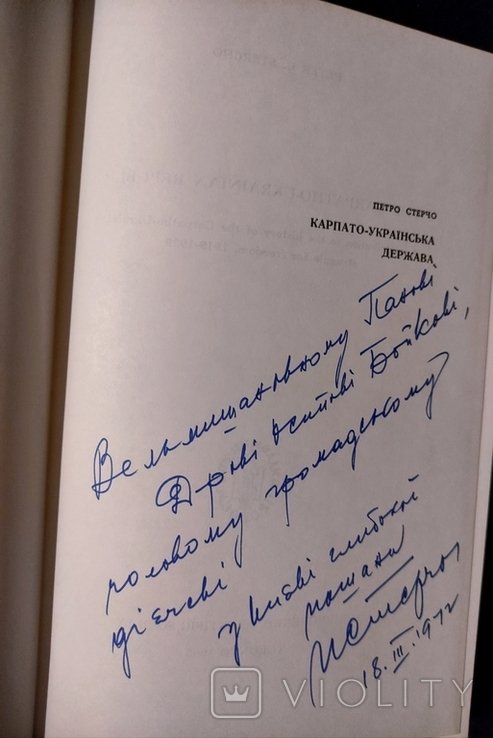 ПЕТРО СТЕРЧО
КАРПАТО-УКРАЇНСЬКА
ДЕРЖАВА
Вельмишановному Панові
Д-рові Бойкові,
чоловому громадському
діячеві
глибокої
пошани
ПСтерчо
18. III. 1972
VIOLITY